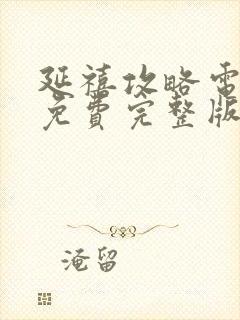 延禧攻略電
免費完整版
淹留